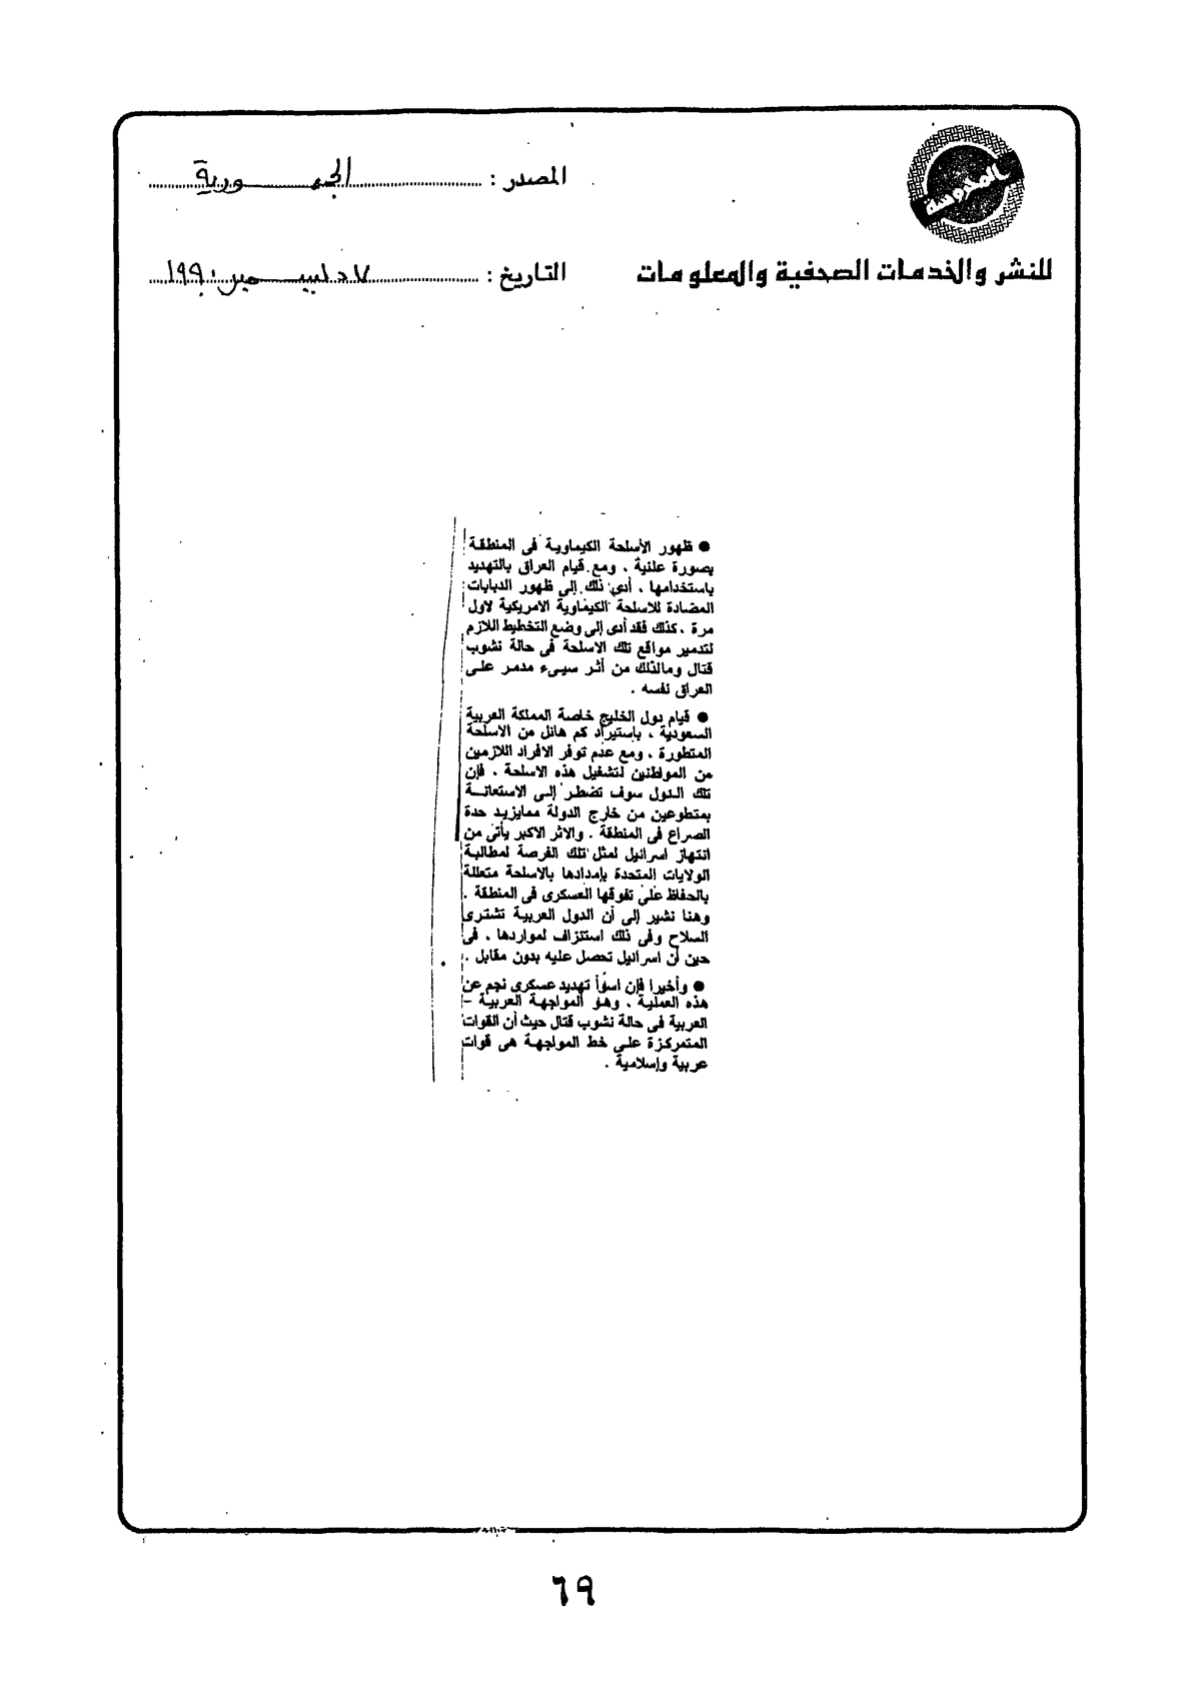 المصدر : الجمهورية
التاريخ : ٧ ديسمبر ١٩٩٠
للنشر والخدمات الصحفية والمعلومات
● ظهور الأسلحة الكيماوية فى المنطقة
بصورة علنية ، ومع قيام العراق بالتهديد
باستخدامها ، أدى ذلك إلى ظهور الدبابات
المضادة للاسلحة الكيماوية الامريكية لاول
مرة ، كذلك فقد أدى إلى وضع التخطيط اللازم
لتدمير مواقع تلك الاسلحة فى حالة نشوب
قتال ومالذلك من أثر سيىء مدمر على
العراق نفسه .
● قيام دول الخليج خاصة المملكة العربية
السعودية ، بإستيراد كم هائل من الاسلحة
المتطورة ، ومع عدم توفر الافراد اللازمين
من المواطنين لتشغيل هذه الاسلحة ، فإن
تلك الدول سوف تضطر إلى الاستعانة
بمتطوعين من خارج الدولة ممايزيد حدة
الصراع فى المنطقة . والاثر الاكبر يأتى من
انتهاز اسرائيل لمثل تلك الفرصة لمطالبة
الولايات المتحدة بإمدادها بالاسلحة متعللة
بالحفاظ على تفوقها العسكرى فى المنطقة .
وهنا نشير إلى أن الدول العربية تشترى
السلاح وفى ذلك استنزاف لمواردها ، فى
حين أن اسرائيل تحصل عليه بدون مقابل .
● وأخيرا فإن اسوأ تهديد عسكرى نجم عن
هذه العملية ، وهو المواجهة العربية -
العربية فى حالة نشوب قتال حيث أن القوات
المتمركزة على خط المواجهة هى قوات
عربية وإسلامية .
٦٩